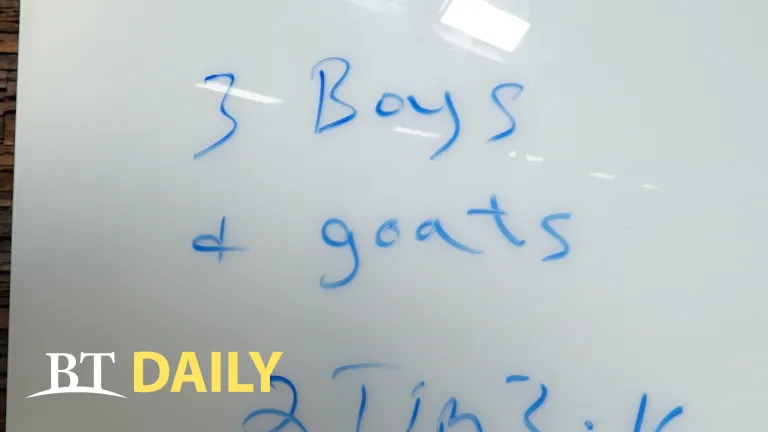 3 Boys
& goats
2 Tim 3:1
BT DAILY